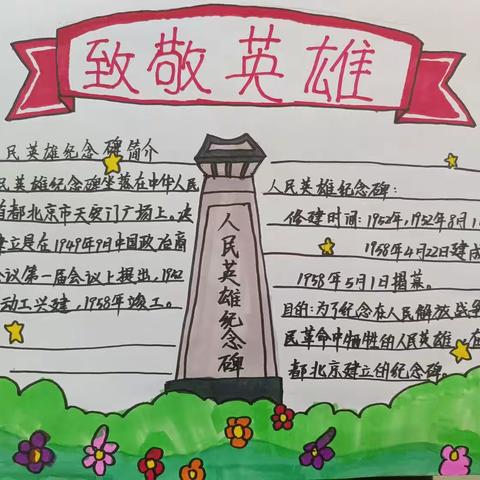 致敬英雄
民英雄纪念碑简介
民英雄纪念碑坐落在中华人民
首都北京市天安门广场上。决
建立是在1949年9月中国政治商
会议第一届会议上提出，1952
动工兴建，1958年竣工。
人民英雄纪念碑
人民英雄纪念碑：
修建时间：1952年，1952年8月1
1958年4月22日建成
1958年5月1日揭幕。
目的：为了纪念在人民解放战争
民革命中牺牲的人民英雄，在
都北京建立的纪念碑。